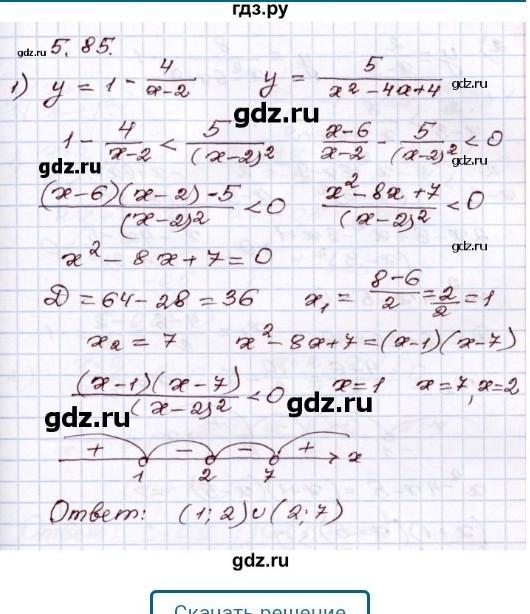 гдз.ру
gdz.ru 5.85. gdz.ru
1) y = 1 - 4/(x-2)   y = 5/(x² - 4x + 4)
gdz.ru gdz.ru
1 - 4/(x-2) < 5/(x-2)²   (x-6)/(x-2) - 5/(x-2)² < 0
gdz.ru gdz.ru
((x-6)(x-2) - 5)/(x-2)² < 0   (x² - 8x + 7)/(x-2)² < 0
x² - 8x + 7 = 0 gdz.ru
gdz.ru
Д = 64 - 28 = 36   x₁ = (8-6)/2 = 2/2 = 1
x₂ = 7   x² - 8x + 7 = (x-1)(x-7)
((x-1)(x-7))/(x-2)² < 0   x = 1   x = 7, x = 2
gdz.ru gdz.ru
+ - - + x
1 2 7
gdz.ru gdz.ru
Ответ: (1; 2)∪(2; 7)
gdz.ru
Скачать решение